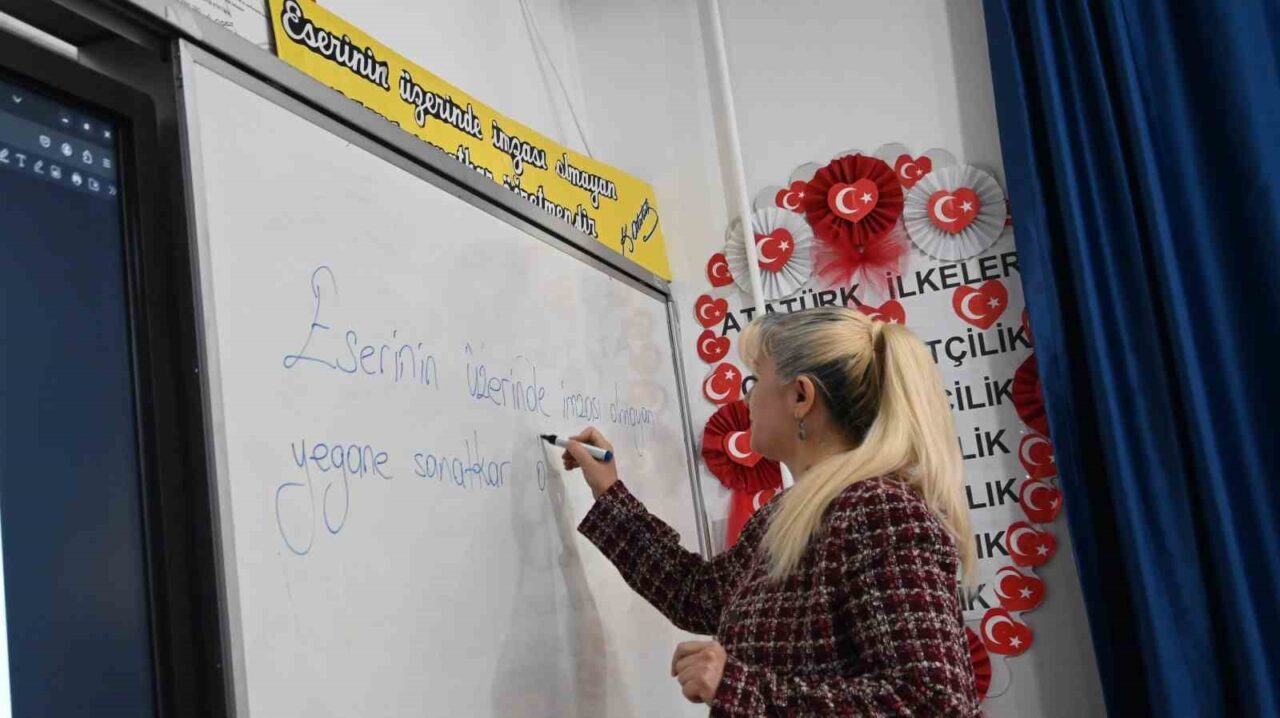 Eserinin üzerinde imzası olmayan
öğretmendir
K.Atatürk
Eserinin üzerinde imzası olmayan
yegane sanatkar ö
ATATÜRK İLKELER
TÇİLİK
ÇİLİK
LİK
LIK
İK
İK